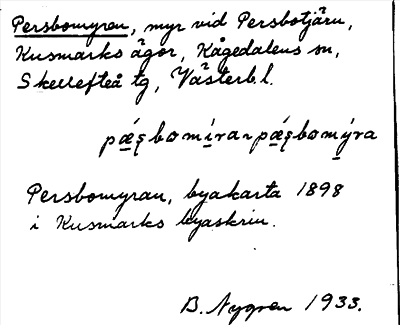 Persbomyran, myr vid Persbotjärn,
Kusmarks ägor, Kågedalens sn,
Skellefteå tg, Västerb. l.
Persbomyran, byakarta 1898
i Kusmarks byaskrin.
B. Nygren 1933.